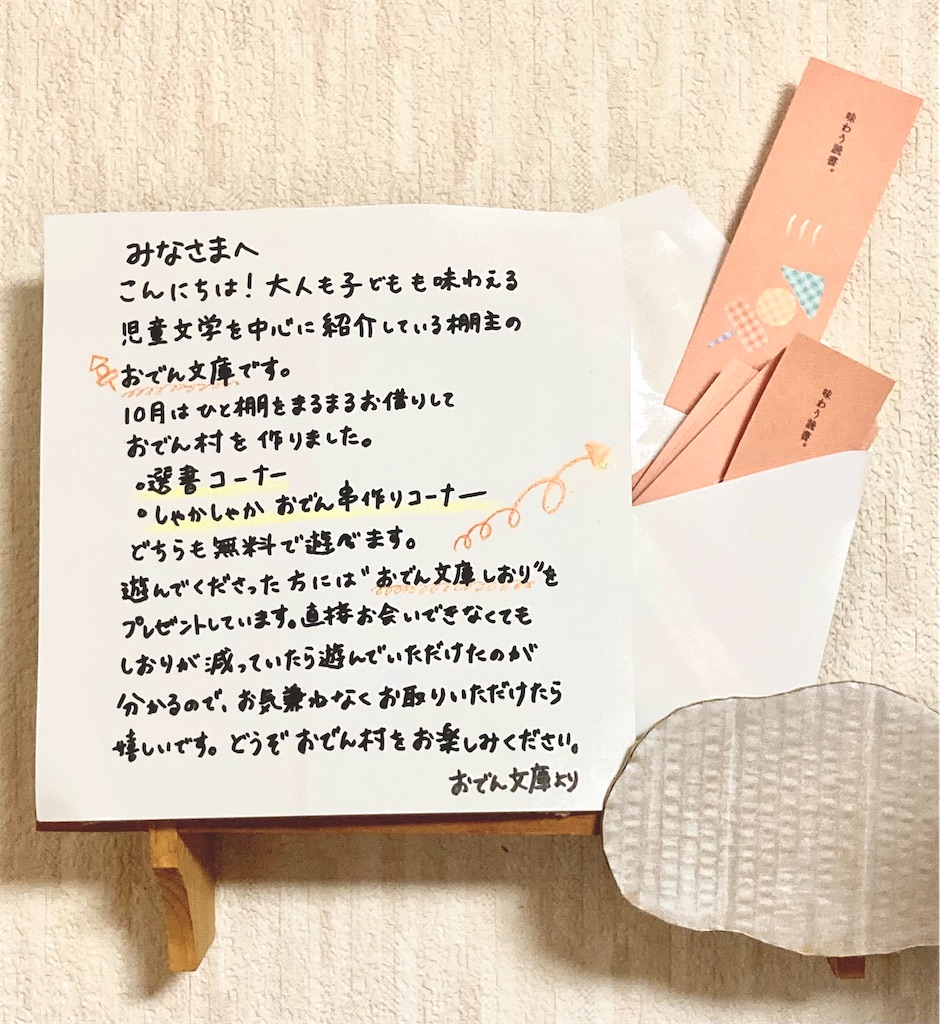 みなさまへ
こんにちは！大人も子どもも味わえる
児童文学を中心に紹介している棚主の
おでん文庫です。
10月はひと棚をまるまるお借りして
おでん村を作りました。
・選書コーナー
・しゃかしゃかおでん串作りコーナー
どちらも無料で遊べます。
遊んでくださった方には“おでん文庫しおり”を
プレゼントしています。直接お会いできなくても
しおりが減っていたら遊んでいただけたのが
分かるので、お気兼ねなくお取りいただけたら
嬉しいです。どうぞおでん村をお楽しみください。
おでん文庫より
味わう読書。
味わう読書。